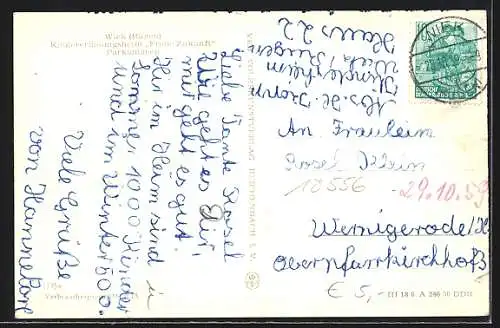 Wiek (Rügen)
Kindererholungsheim „Frohe Zukunft"
Parkanlagen
Liebe Tante Rosel
Wie geht es Dir?
mir geht es gut.
Hir im Heim sind i
Sommer 1000 Kinder
und im Winter 500.
Viele Grüße
von Hannelore
Abs. H.
Kinderheim
Wiek / Rügen
Haus 22
WIEK
An Fräulein
Rosel Klein
12556
29.10.59
Wernigerode/H
Oberpfarrkirchhof 5
€ 5,-
III 18 6 A 286 56 DDR